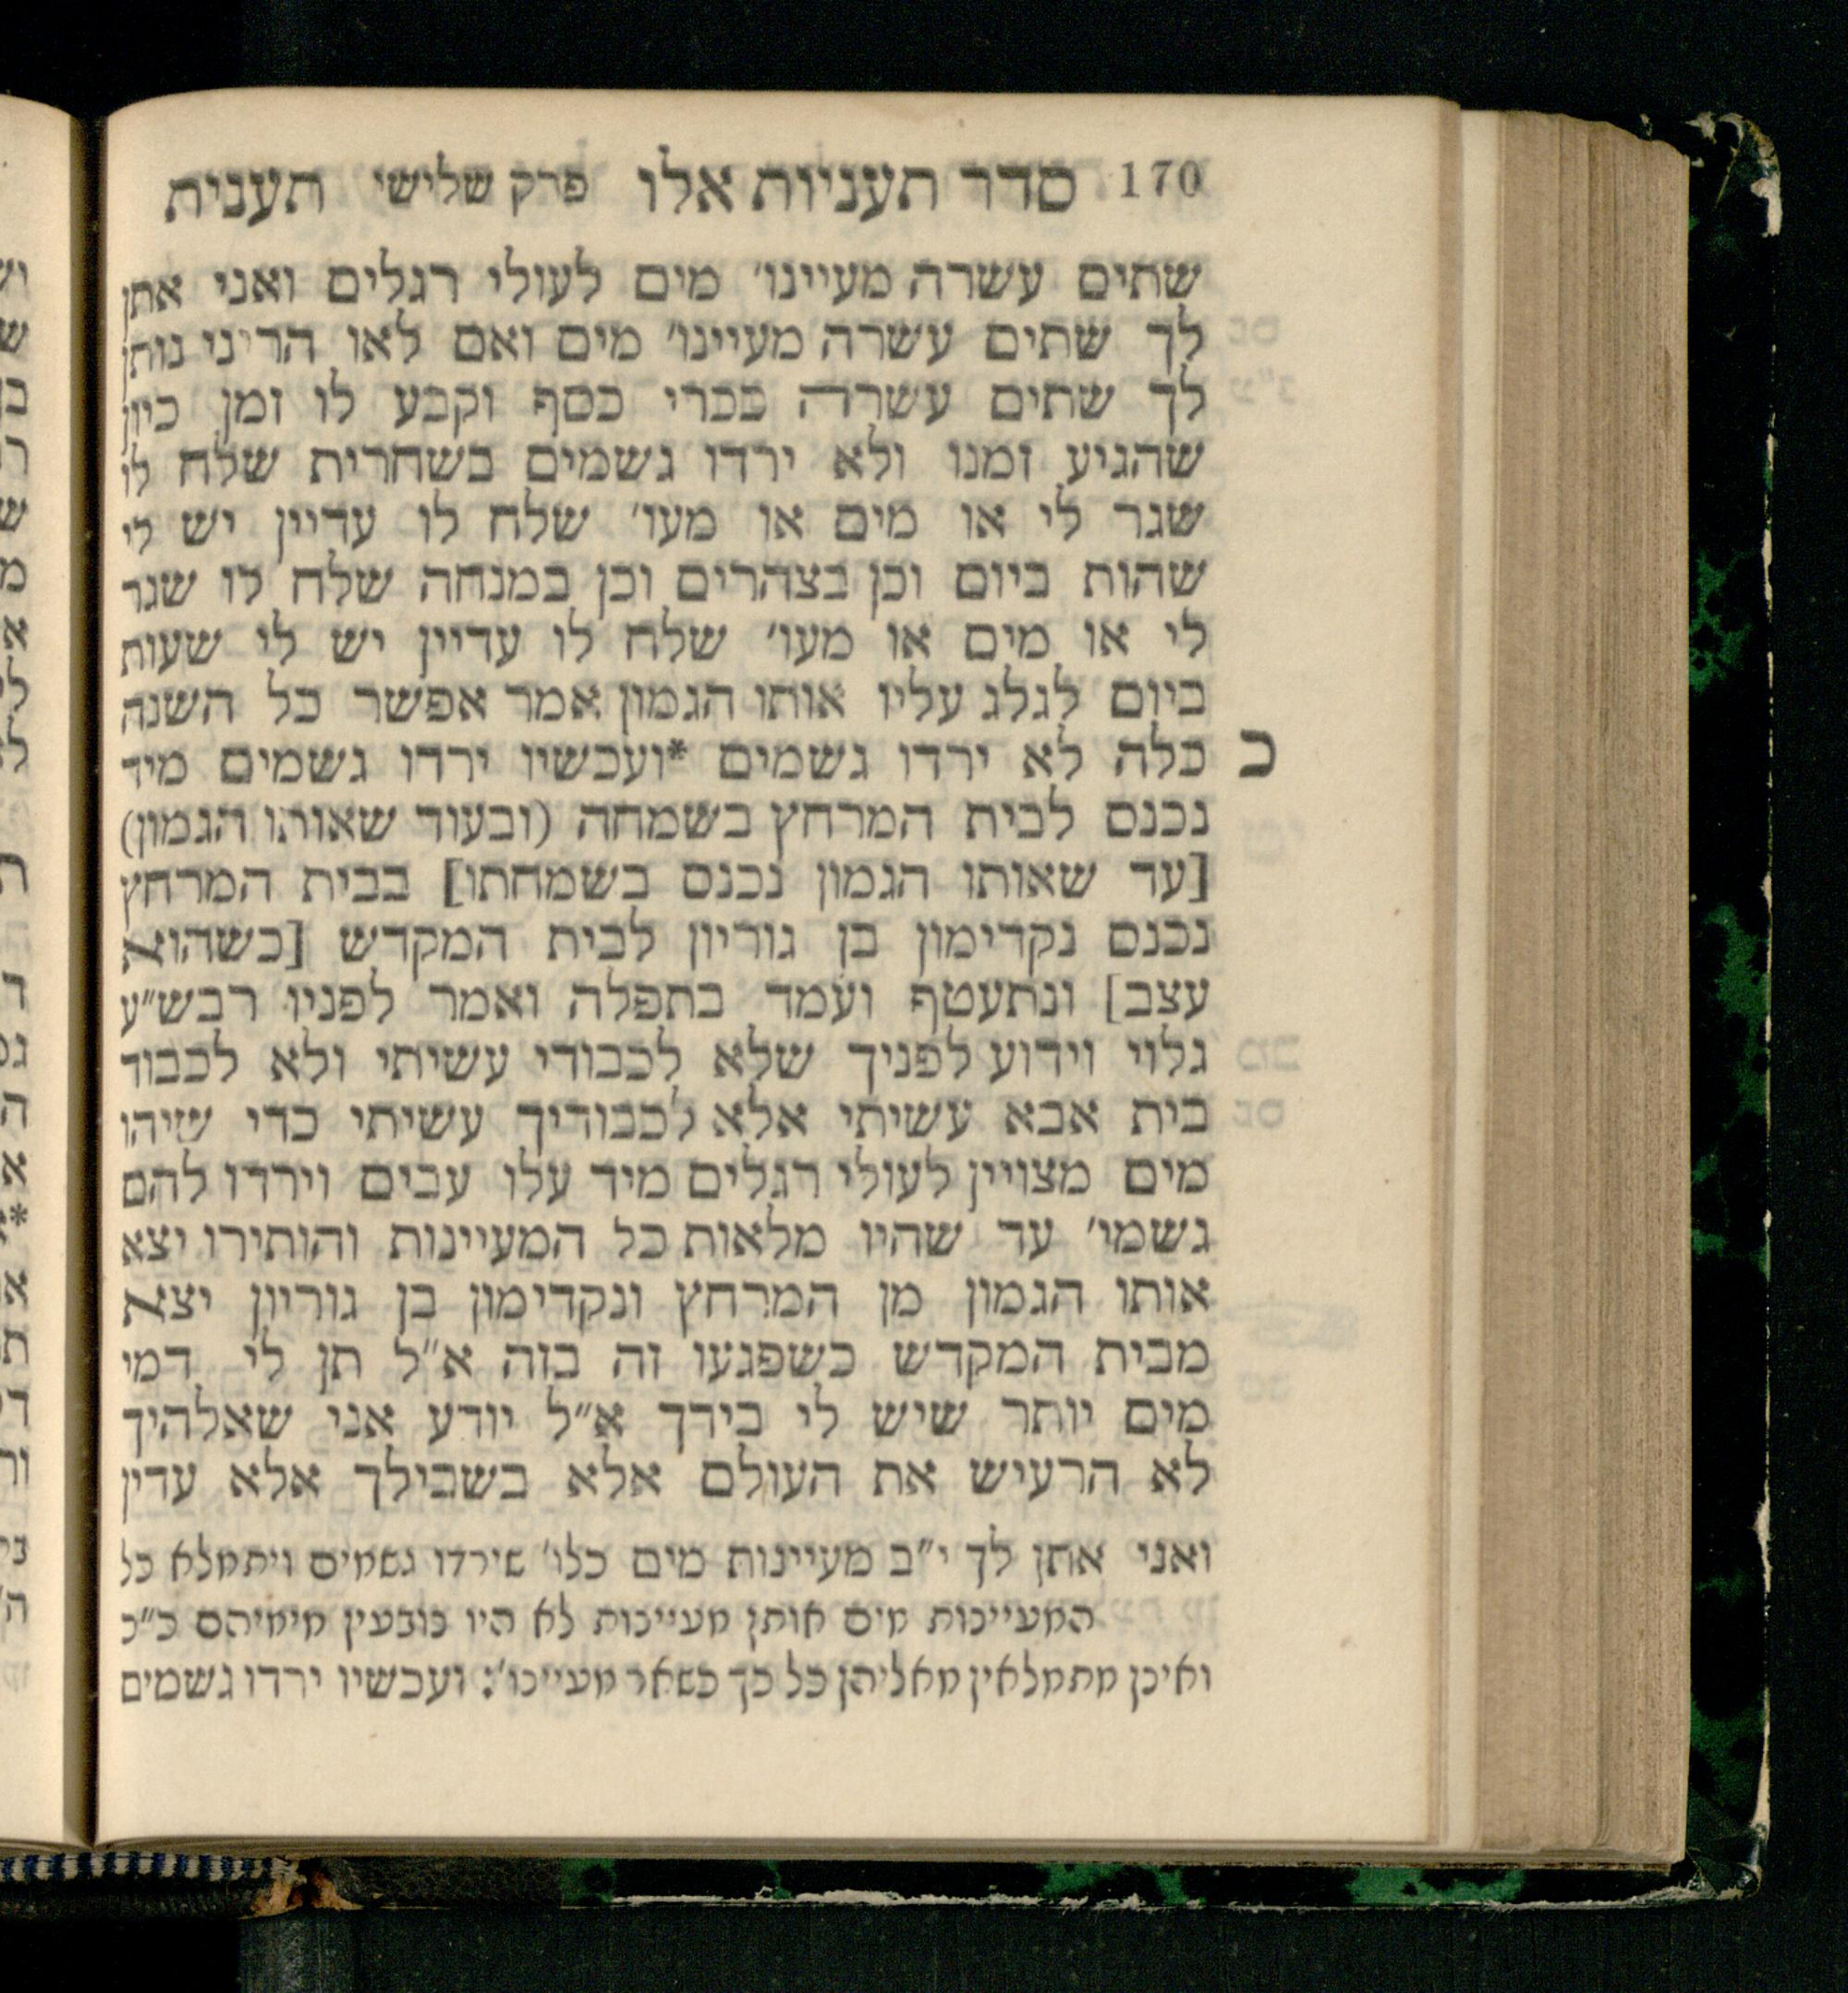 170 סדר תעניות אלו פרק שלישי תענית
שתים עשרה מעיינו׳ מים לעולי רגלים ואני אתן
לך שתים עשרה מעיינו׳ מים ואם לאו הריני נותן
לך שתים עשרה ככרי כסף וקבע לו זמן כיון
שהגיע זמנו ולא ירדו גשמים בשחרית שלח לו
שגר לי או מים או מעו׳ שלח לו עדיין יש לי
שהות ביום וכן בצהרים וכן במנחה שלח לו שגר
לי או מים או מעו׳ שלח לו עדיין יש לי שעות
ביום לגלג עליו אותו הגמון אמר אפשר כל השנה
כ כלה לא ירדו גשמים *ועכשיו ירדו גשמים מיד
נכנס לבית המרחץ בשמחה (ובעוד שאותו הגמון)
[עד שאותו הגמון נכנס בשמחתו] בבית המרחץ
נכנס נקדימון בן גוריון לבית המקדש [כשהוא
עצב] ונתעטף ועמד בתפלה ואמר לפניו רבש״ע
גלוי וידוע לפניך שלא לכבודי עשיתי ולא לכבוד
בית אבא עשיתי אלא לכבודיך עשיתי כדי שיהו
מים מצויין לעולי רגלים מיד עלו עבים וירדו להם
גשמי׳ עד שהיו מלאות כל המעיינות והותירו יצא
אותו הגמון מן המרחץ ונקדימון בן גוריון יצא
מבית המקדש כשפגעו זה בזה א״ל תן לי דמי
מים יותר שיש לי בידך א״ל יודע אני שאלהיך
לא הרעיש את העולם אלא בשבילך אלא עדין
ואני אתן לך י״ב מעיינות מים כלו׳ שירדו גשמים ויתמלא כל
המעיינות מים אותן מעיינות לא היו נובעין מימיהם כ״כ
ואינן מתמלאין מאליהן כל כך כשאר מעיינו׳: ועכשיו ירדו גשמים